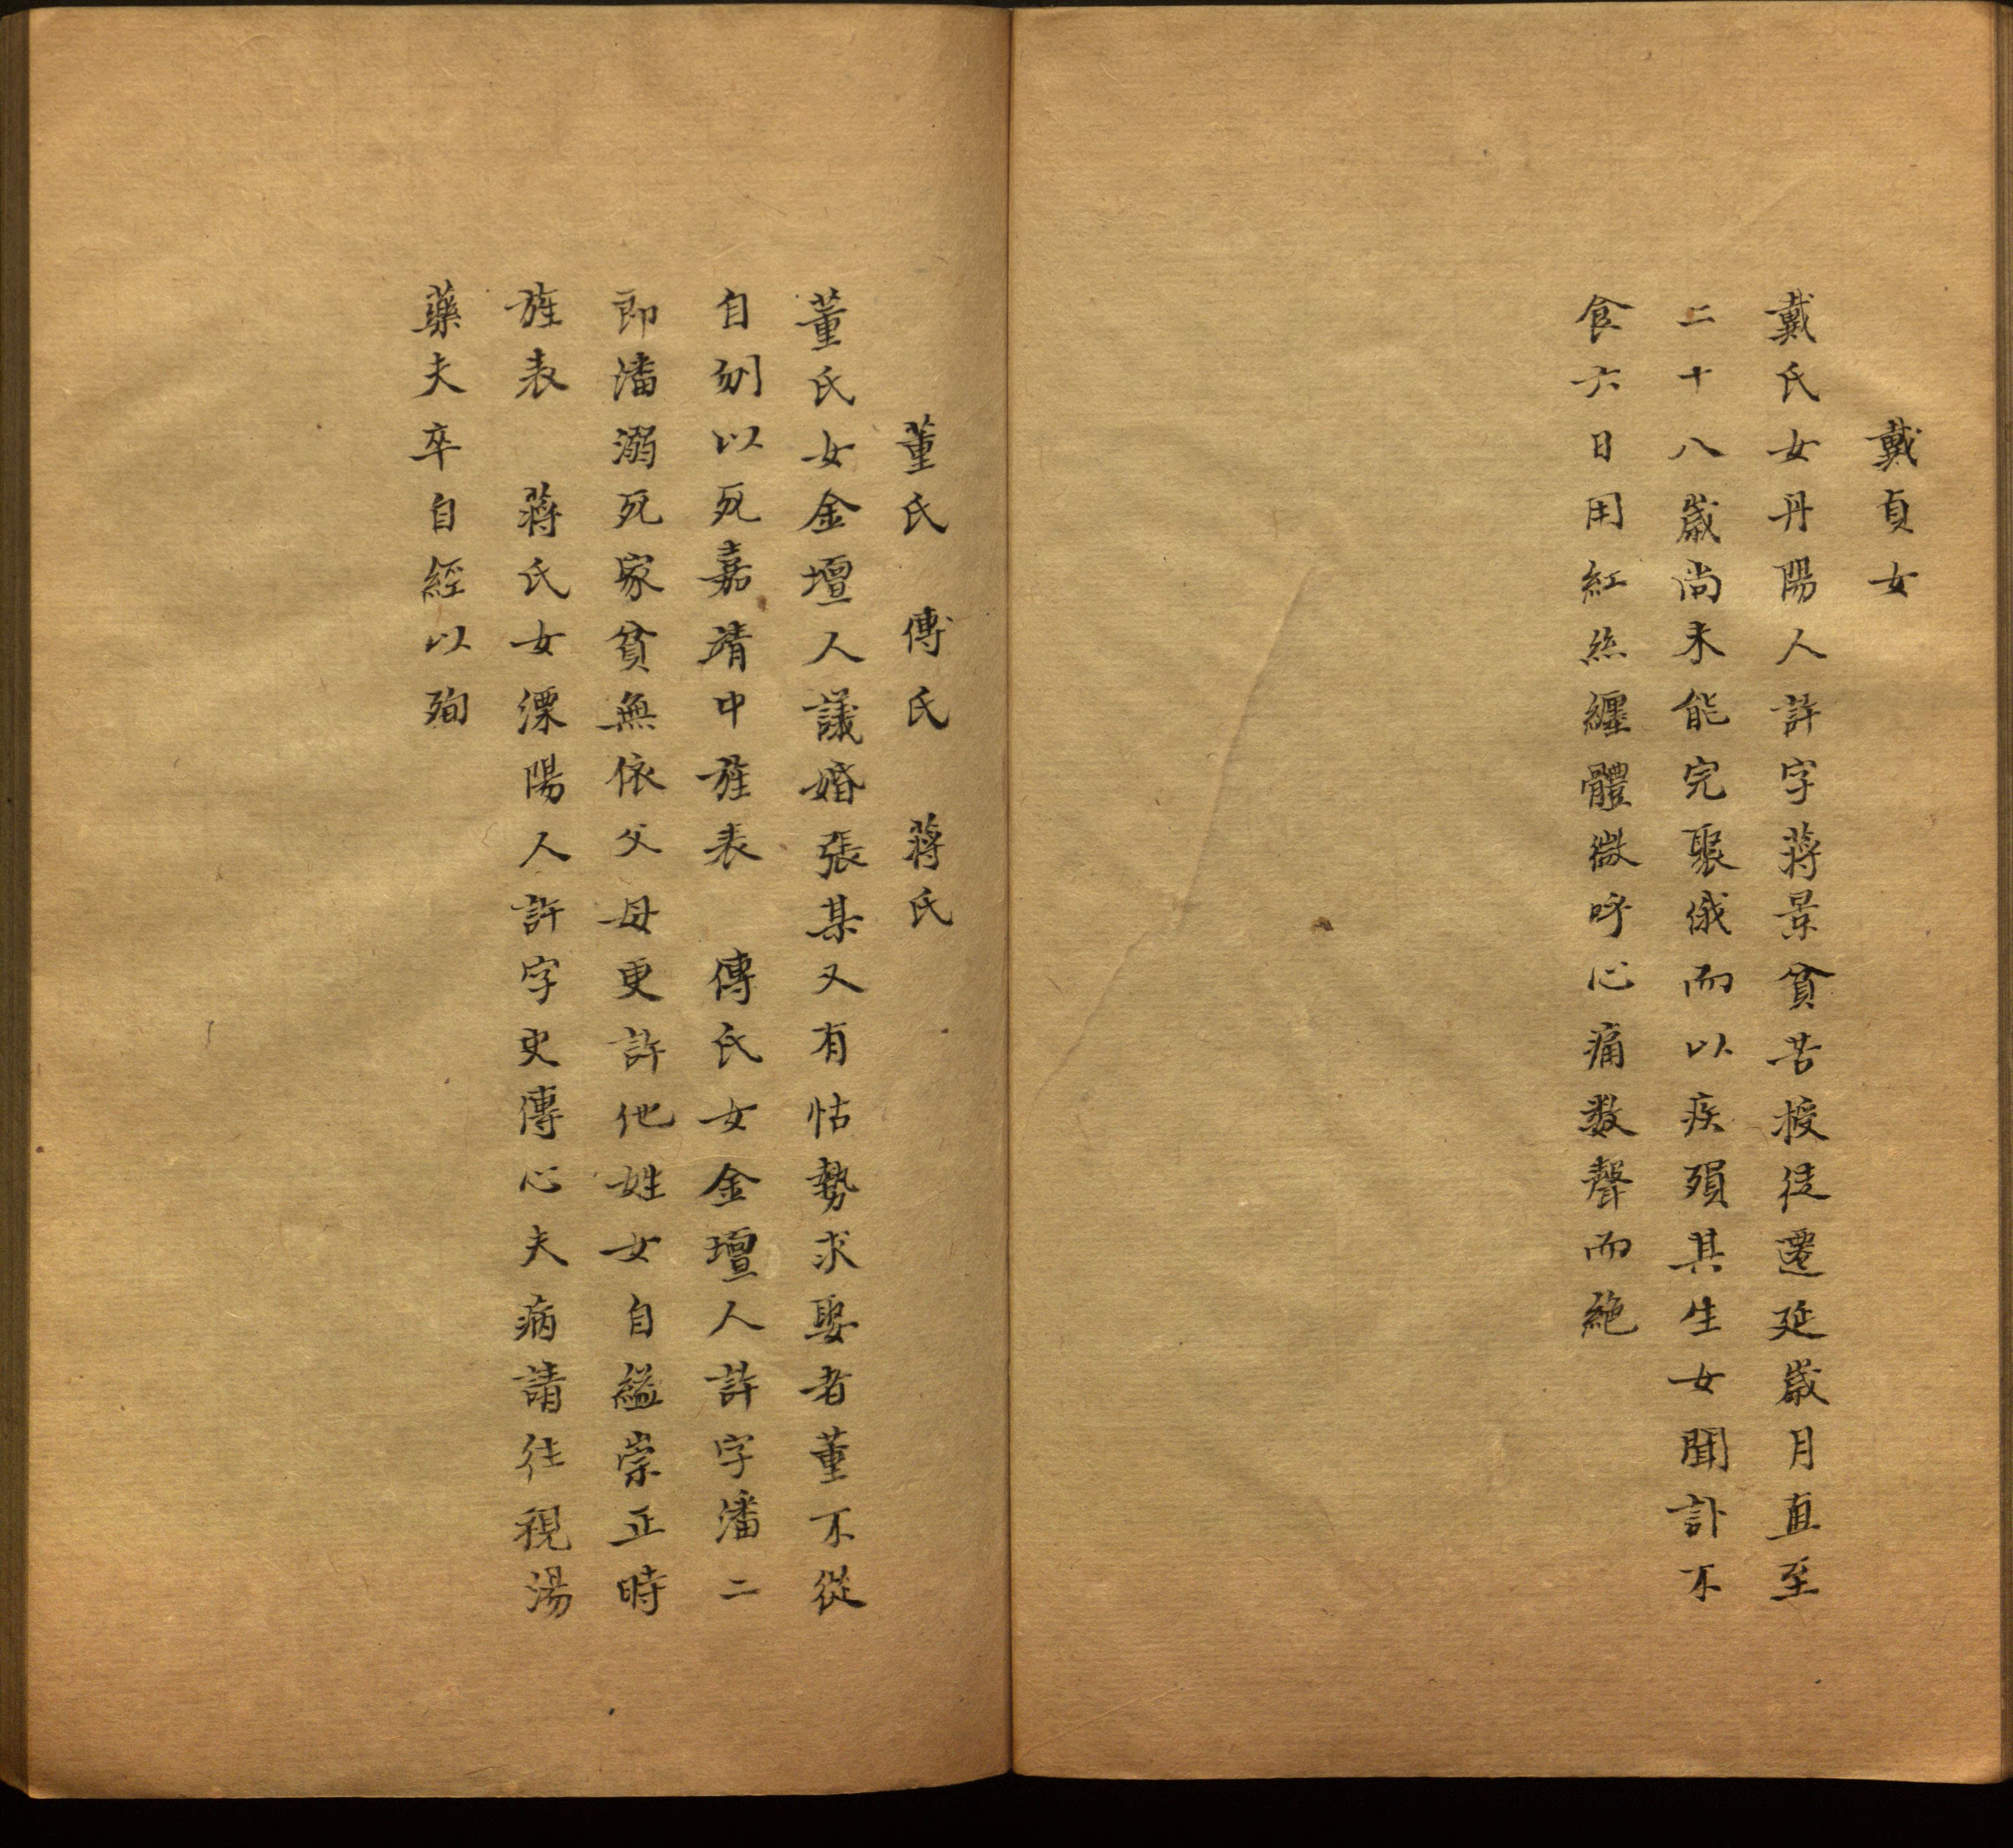 戴貞女
戴氏女丹陽人許字蔣景貧苦授徒遷延歲月直至
二十八歲尚未能完聚俄而以疾殞其生女聞訃不
食六日用紅絲纏體微呼心痛数聲而絶
董氏 傅氏 蔣氏
董氏女金壇人議婚張某又有怙勢求娶者董不從
自刎以死嘉靖中旌表 傅氏女金壇人許字潘二
即潘溺死家貧無依父母更許他姓女自縊崇正時
旌表 蔣氏女溧陽人許字史傳心夫病請往視湯
藥夫卒自經以殉